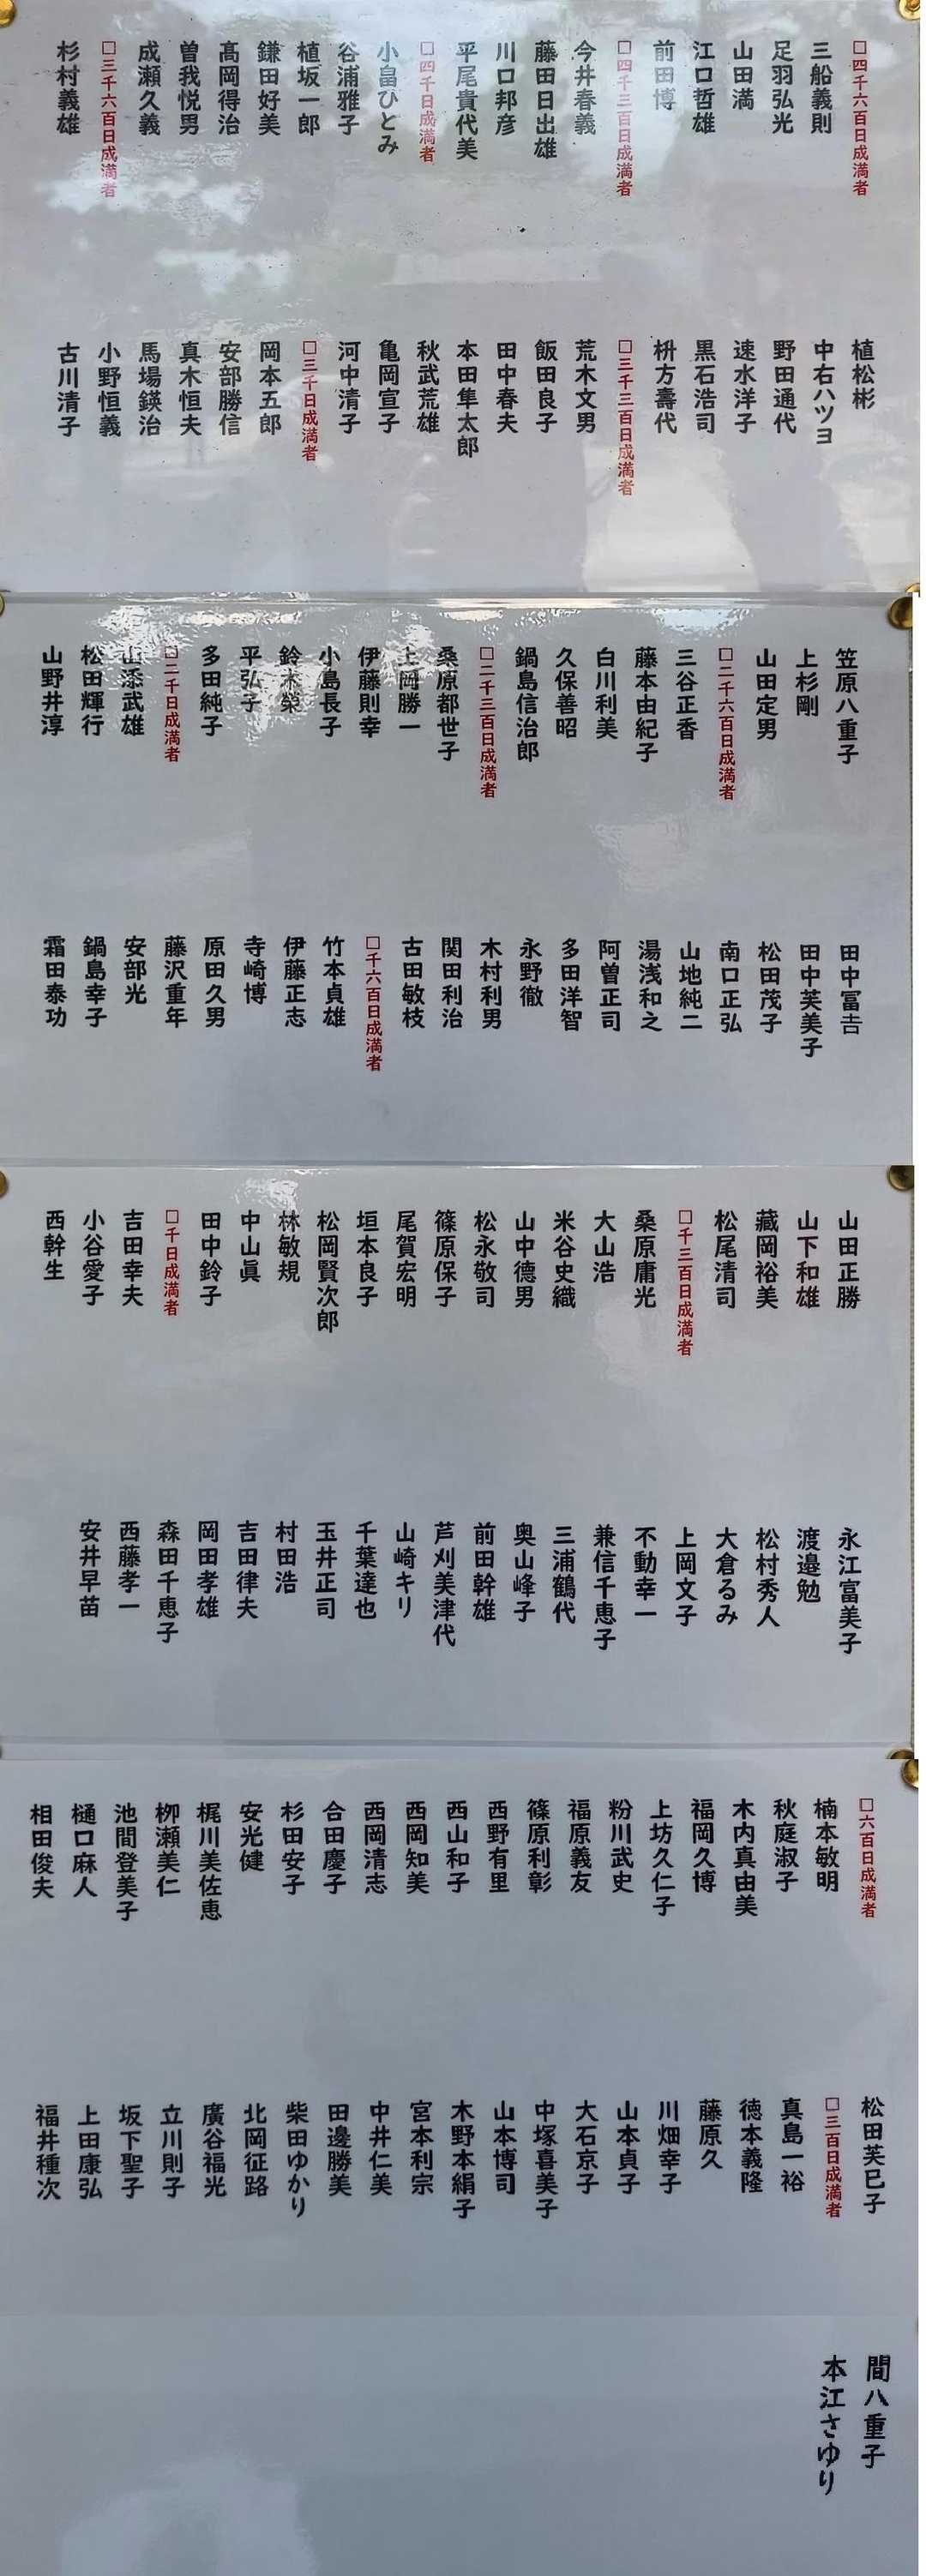 □四千六百日成満者
三船義則
足羽弘光
山田満
江口哲雄
前田博
□四千三百日成満者
今井春義
藤田日出雄
川口邦彦
平尾貴代美
□四千日成満者
小畠ひとみ
谷浦雅子
植坂一郎
鎌田好美
髙岡得治
曽我悦男
成瀬久義
□三千六百日成満者
杉村義雄
植松彬
中右ハツヨ
野田通代
速水洋子
黒石浩司
枡方壽代
□三千三百日成満者
荒木文男
飯田良子
田中春夫
本田隼太郎
秋武荒雄
亀岡宣子
河中清子
□三千日成満者
岡本五郎
安部勝信
真木恒夫
馬場鍈治
小野恒義
古川清子
笠原八重子
上杉剛
山田定男
□二千六百日成満者
三谷正香
藤本由紀子
白川利美
久保善昭
鍋島信治郎
□二千三百日成満者
桑原都世子
上岡勝一
伊藤則幸
小島長子
鈴木榮
平弘子
多田純子
□二千日成満者
山添武雄
松田輝行
山野井淳
田中冨𠮷
田中芙美子
松田茂子
南口正弘
山地純二
湯浅和之
阿曽正司
多田洋智
永野徹
木村利男
関田利治
古田敏枝
□千六百日成満者
竹本貞雄
伊藤正志
寺崎博
原田久男
藤沢重年
安部光
鍋島幸子
霜田泰功
山田正勝
山下和雄
藏岡裕美
松尾清司
□千三百日成満者
桑原庸光
大山浩
米谷史織
山中德男
松永敬司
篠原保子
尾賀宏明
垣本良子
松岡賢次郎
林敏規
中山眞
田中鈴子
□千日成満者
吉田幸夫
小谷愛子
西幹生
永江富美子
渡邉勉
松村秀人
大倉るみ
上岡文子
不動幸一
兼信千恵子
三浦鶴代
奥山峰子
前田幹雄
芦刈美津代
山崎キリ
千葉達也
玉井正司
村田浩
吉田律夫
岡田孝雄
森田千恵子
西藤孝一
安井早苗
□六百日成満者
楠本敏明
秋庭淑子
木内真由美
福岡久博
上坊久仁子
粉川武史
福原義友
篠原利彰
西野有里
西山和子
西岡知美
西岡清志
合田慶子
杉田安子
安光健
梶川美佐恵
栁瀬美仁
池間登美子
樋口麻人
相田俊夫
松田芙巳子
□三百日成満者
真島一裕
徳本義隆
藤原久
川畑幸子
山本貞子
大石京子
中塚喜美子
山本博司
木野本絹子
宮本利宗
中井仁美
田邊勝美
柴田ゆかり
北岡征路
廣谷福光
立川則子
坂下聖子
上田康弘
福井種次
間八重子
本江さゆり